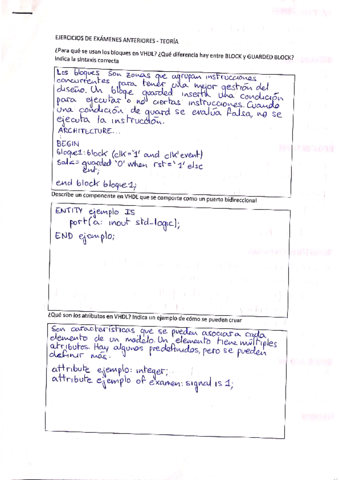 EJERCICIOS DE EXÁMENES ANTERIORES - TEORÍA
¿Para qué se usan los bloques en VHDL? ¿Qué diferencia hay entre BLOCK y GUARDED BLOCK?
Indica la sintaxis correcta
Los bloques son zonas que agrupan instrucciones
concurrentes para tener una mejor gestión del
diseño. Un bloque guarded inserta una condición
para ejecutar o no ciertas instrucciones. Cuando
una condición de guard se evalúa falsa, no se
ejecuta la instrucción.
ARCHITECTURE...
BEGIN
bloque1: block (clk='1' and clk'event)
sal<= guarded '0' when rst='1' else
ent;
end block bloque1;
Describe un componente en VHDL que se comporte como un puerto bidireccional
ENTITY ejemplo IS
port(a: inout std-logic);
END ejemplo;
¿Qué son los atributos en VHDL? Indica un ejemplo de cómo se pueden crear
Son características que se pueden asociar a cada
elemento de un modelo. Un elemento tiene múltiples
atributos. Hay algunos predefinidos, pero se pueden
definir más.
attribute ejemplo: integer;
attribute ejemplo of examen: signal is 1;